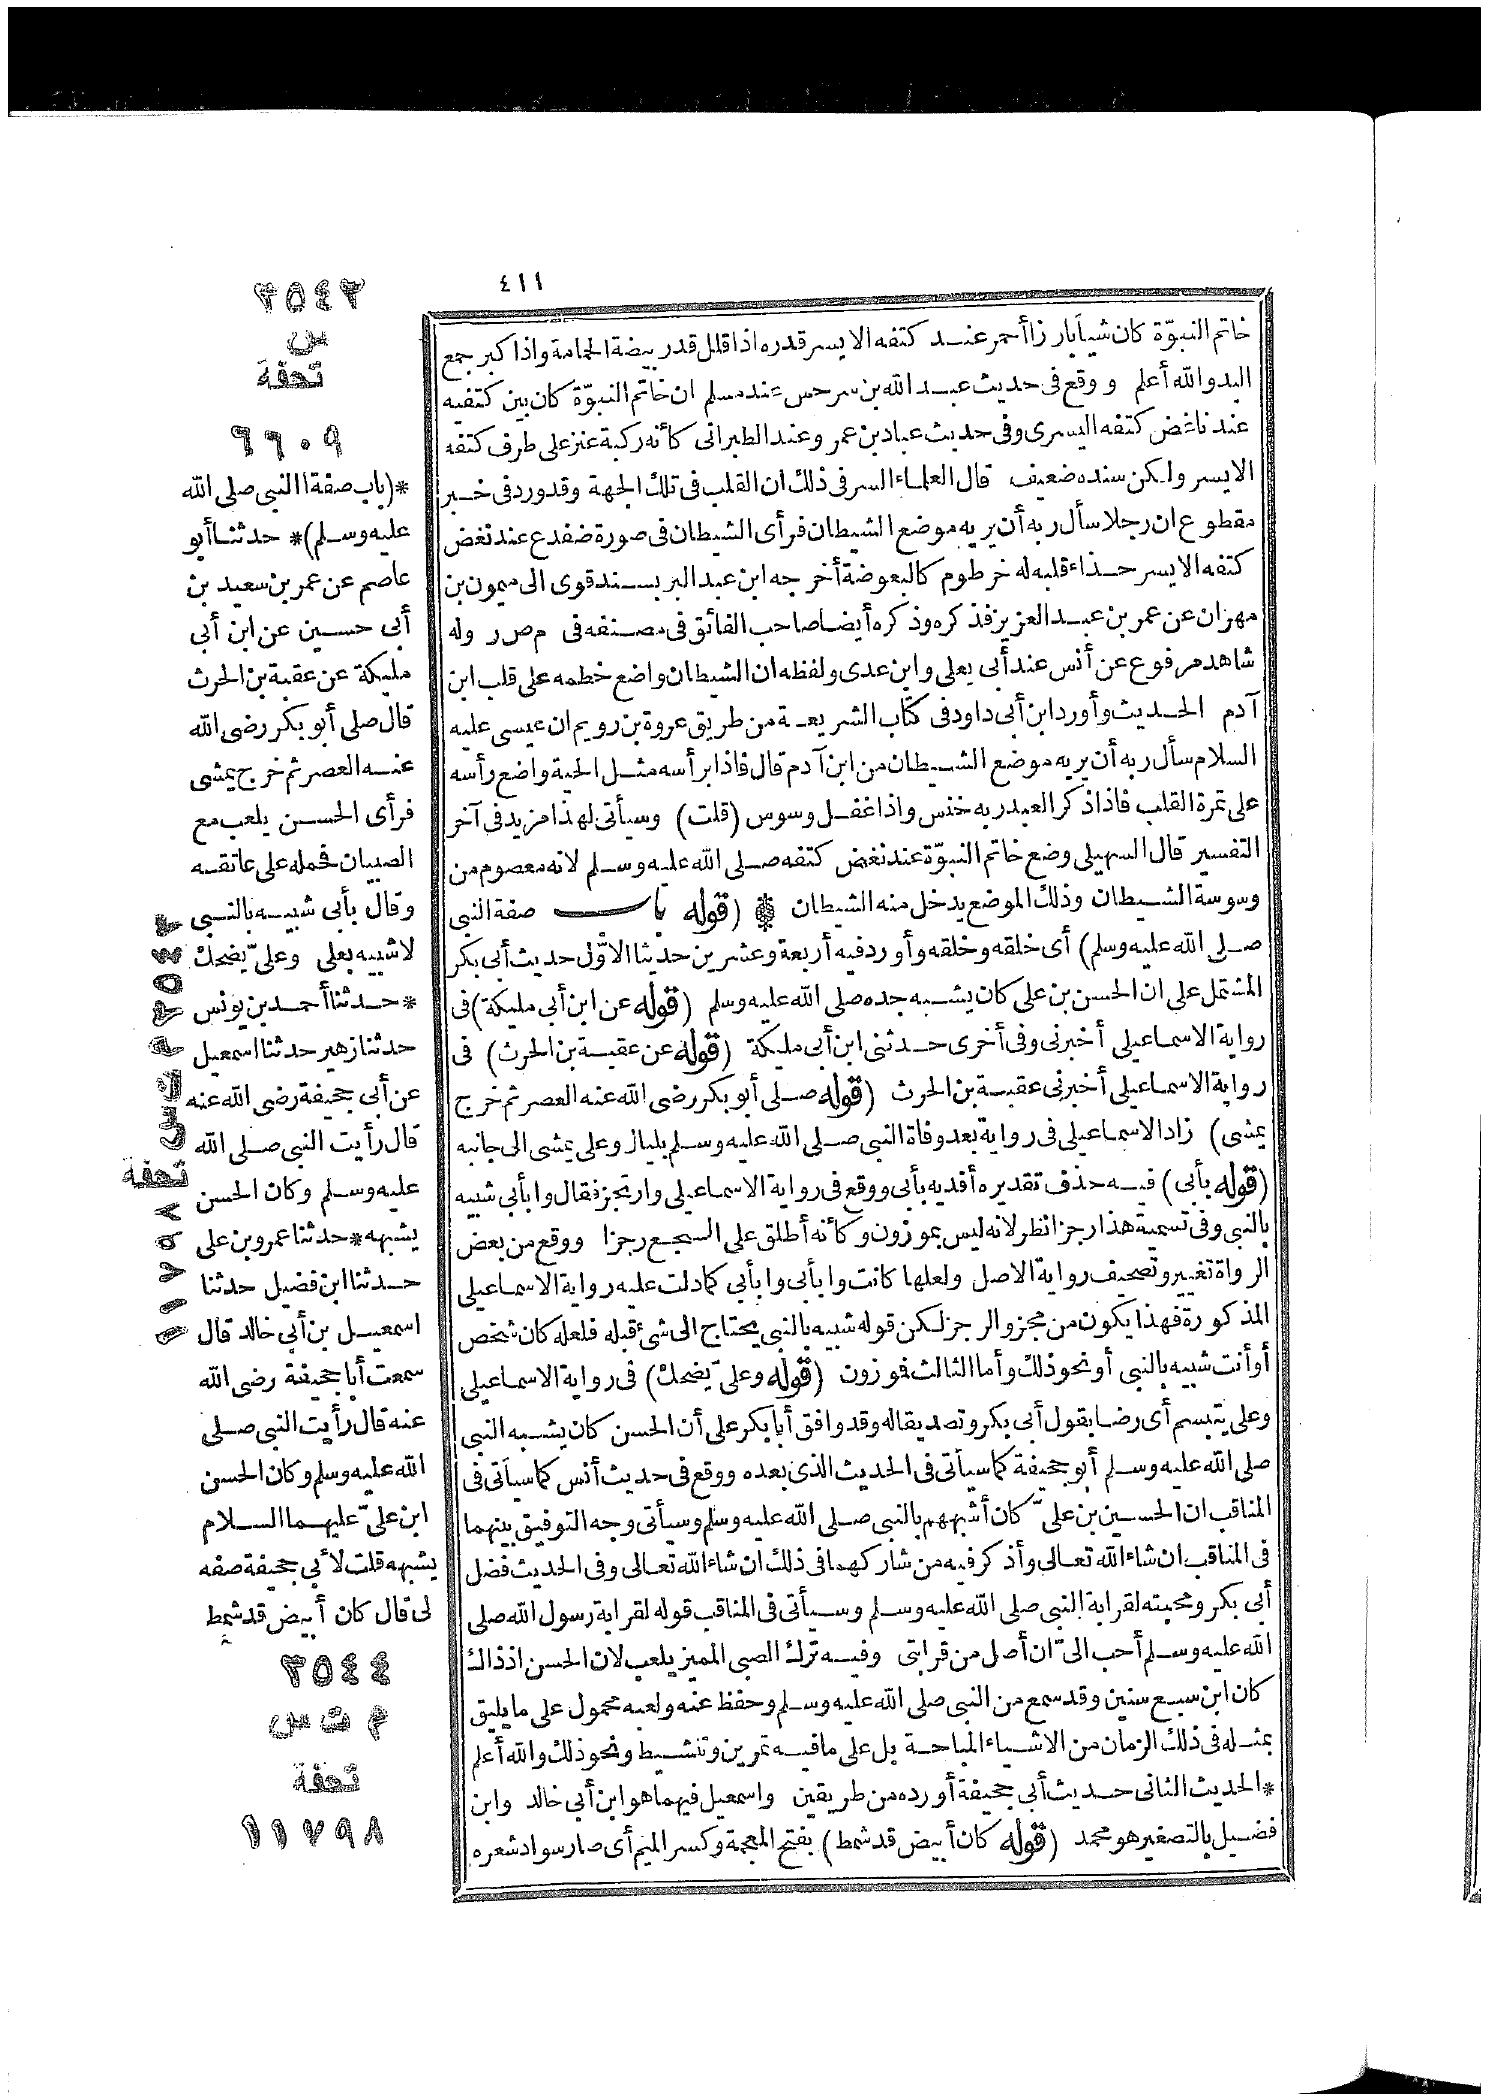 ٤١١
خاتم النبوّة كان شيأ بارزا أحمر عند كتفه الايسر قدره اذا قلل قدر بيضة الحمامة واذا كبر جمع
اليد والله أعلم ووقع فى حديث عبد الله بن سرجس عند مسلم ان خاتم النبوّة كان بين كتفيه
عند ناغض كتفه اليسرى وفى حديث عباد بن عمر وعند الطبرانى كأنه ركبة عنز على طرف كتفه
الايسر ولكن سنده ضعيف قال العلماء السر فى ذلك ان القلب فى تلك الجهة وقد ورد فى خبر
مقطوع ان رجلا سأل ربه أن يريه موضع الشيطان فرأى الشيطان فى صورة ضفدع عند نغض
كتفه الايسر حذاء قلبه له خرطوم كالبعوضة أخرجه ابن عبد البر بسند قوى الى ميمون بن
مهران عن عمر بن عبد العزيز فذكره وذكره أيضا صاحب الفائق فى مصنفه فى م ص ر وله
شاهد مرفوع عن أنس عند أبى يعلى وابن عدى ولفظه ان الشيطان واضع خطمه على قلب ابن
آدم الحديث وأورد ابن أبى داود فى كتاب الشريعة من طريق عروة بن رويم ان عيسى عليه
السلام سأل ربه أن يريه موضع الشيطان من ابن آدم قال فاذا برأسه مثل الحية واضع رأسه
على تمرة القلب فاذا ذكر العبد ربه خنس واذا غفل وسوس (قلت) وسيأتى لهذا مزيد فى آخر
التفسير قال السهيلى وضع خاتم النبوّة عند نغض كتفه صلى الله عليه وسلم لانه معصوم من
وسوسة الشيطان وذلك الموضع يدخل منه الشيطان (قوله باب صفة النبى
صلى الله عليه وسلم) أى خلقه وخلقه وأورد فيه أربعة وعشرين حديثا الاوّل حديث أبى بكر
المشتمل على ان الحسن بن على كان يشبه جده صلى الله عليه وسلم (قوله عن ابن أبى مليكة) فى
رواية الاسماعيلى أخبرنى وفى أخرى حدثنى ابن أبى مليكة (قوله عن عقبة بن الحرث) فى
رواية الاسماعيلى أخبرنى عقبة بن الحرث (قوله صلى أبو بكر رضى الله عنه العصر ثم خرج
يمشى) زاد الاسماعيلى فى رواية بعد وفاة النبى صلى الله عليه وسلم بليال وعلى يمشى الى جانبه
(قوله بأبى) فيه حذف تقديره أفديه بأبى ووقع فى رواية الاسماعيلى وارتجز فقال وا بأبى شبيه
بالنبى وفى تسمية هذا رجزا نظر لانه ليس بموزون وكأنه أطلق على السجع رجزا ووقع من بعض
الرواة تغيير وتصحيف رواية الاصل ولعلها كانت وا بأبى وا بأبى كما دلت عليه رواية الاسماعيلى
المذكورة فهذا يكون من مجزو الرجز لكن قوله شبيه بالنبى يحتاج الى شئ قبله فلعله كان شخص
أو أنت شبيه بالنبى أو نحو ذلك وأما الثالث فموزون (قوله وعلىّ يضحك) فى رواية الاسماعيلى
وعلى يتبسم أى رضا بقول أبى بكر وتصديقا له وقد وافق أبا بكر على أن الحسن كان يشبه النبى
صلى الله عليه وسلم أبو جحيفة كما سيأتى فى الحديث الذى بعده ووقع فى حديث أنس كما سيأتى فى
المناقب ان الحسين بن علىّ كان أشبههم بالنبى صلى الله عليه وسلم وسيأتى وجه التوفيق بينهما
فى المناقب ان شاء الله تعالى وأذكر فيه من شاركهما فى ذلك ان شاء الله تعالى وفى الحديث فضل
أبى بكر ومحبته لقرابة النبى صلى الله عليه وسلم وسيأتى فى المناقب قوله لقرابة رسول الله صلى
الله عليه وسلم أحب الىّ ان أصل من قرابتى وفيه ترك الصبى المميز يلعب لان الحسن اذ ذاك
كان ابن سبع سنين وقد سمع من النبى صلى الله عليه وسلم وحفظ عنه ولعبه محمول على ما يليق
بمثله فى ذلك الزمان من الاشياء المباحة بل على ما فيه تمرين وتنشيط ونحو ذلك والله أعلم
*الحديث الثانى حديث أبى جحيفة أورده من طريقين واسمعيل فيهما هو ابن أبى خالد وابن
فضيل بالتصغير هو محمد (قوله كان أبيض قد شمط) بفتح المعجمة وكسر الميم أى صار سواد شعره
٣٥٤٢
س
تحفة
٦٦٠٩
*(باب صفة النبى صلى الله
عليه وسلم)* حدثنا أبو
عاصم عن عمر بن سعيد بن
أبى حسين عن ابن أبى
مليكة عن عقبة بن الحرث
قال صلى أبو بكر رضى الله
عنه العصر ثم خرج يمشى
فرأى الحسن يلعب مع
الصبيان فحمله على عاتقه
وقال بأبى شبيه بالنبى
لا شبيه بعلى وعلىّ يضحك
*حدثنا أحمد بن يونس
حدثنا زهير حدثنا اسمعيل
عن أبى جحيفة رضى الله عنه
قال رأيت النبى صلى الله
عليه وسلم وكان الحسن
يشبهه*حدثنا عمرو بن على
حدثنا ابن فضيل حدثنا
اسمعيل بن أبى خالد قال
سمعت أبا جحيفة رضى الله
عنه قال رأيت النبى صلى
الله عليه وسلم وكان الحسن
ابن علىّ عليهما السلام
يشبهه قلت لأبى جحيفة صفه
لى قال كان أبيض قد شمط
٣٥٤٤
م ت س
تحفة
١١٧٩٨
تحفة
١١٧٩٨